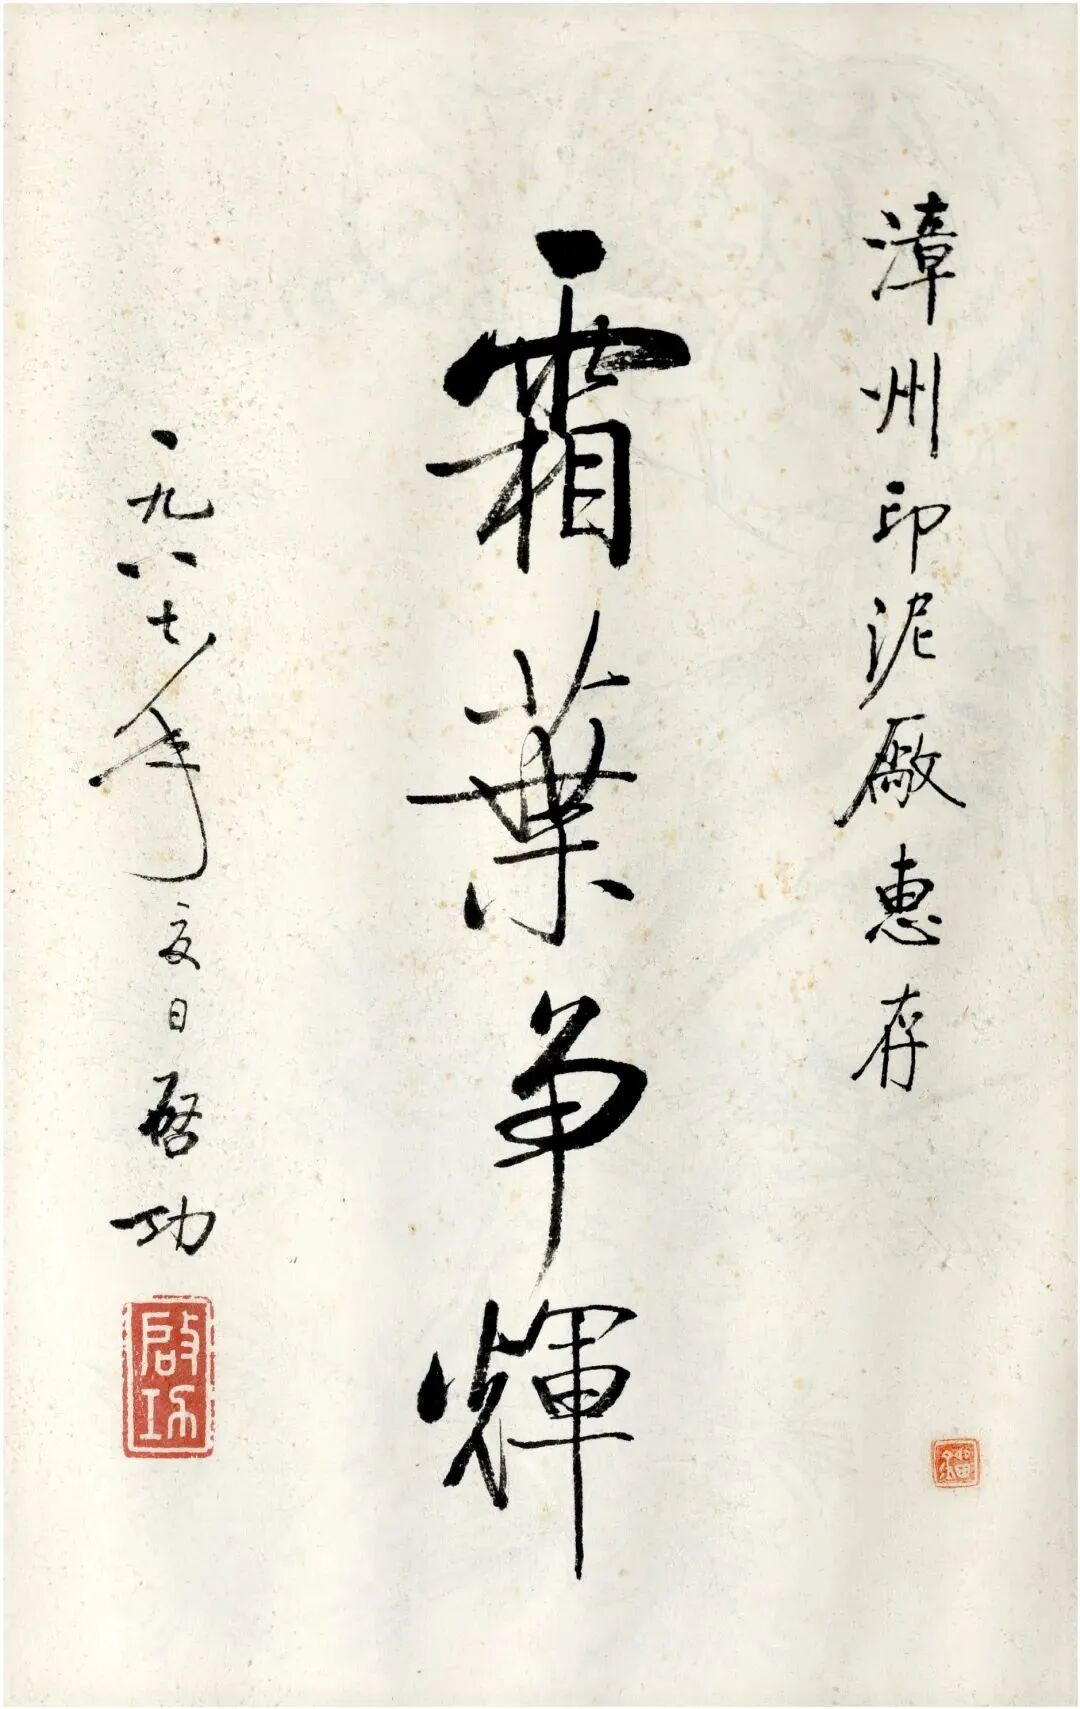 漳州印泥廠惠存
霜葉争輝
一九八七年夏日啓功
啓功